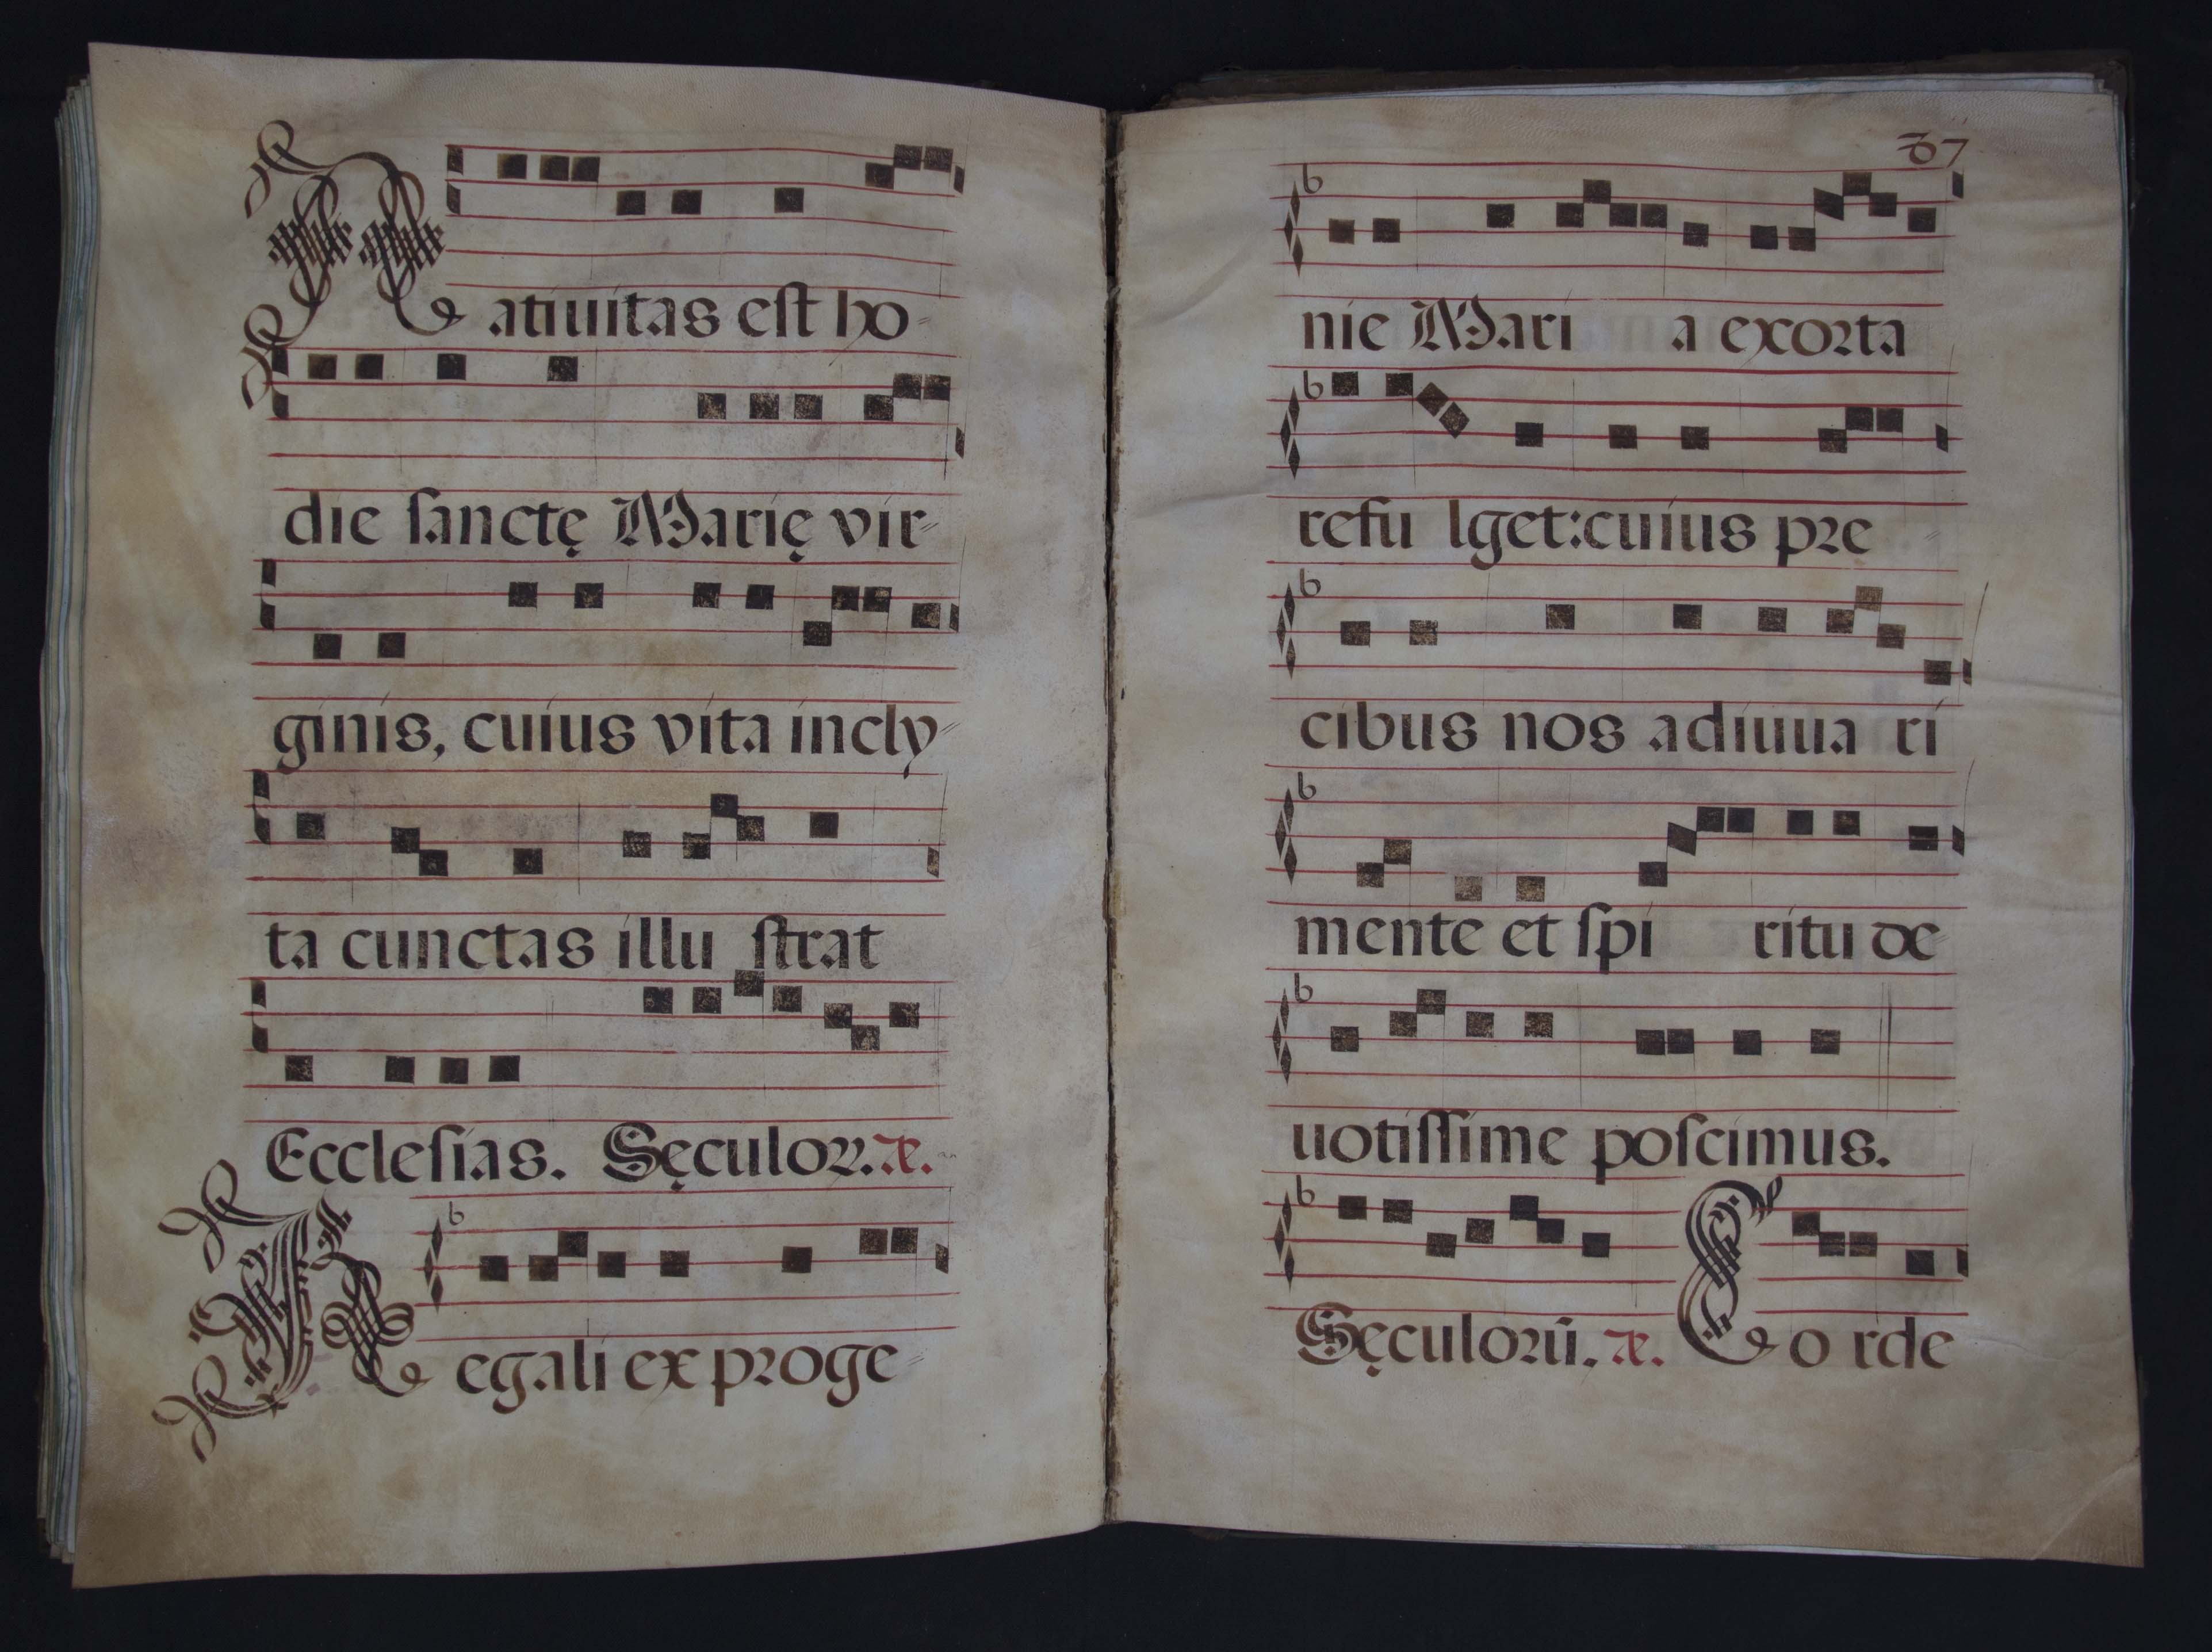 Natiuitas est ho-
die sanctę Marię vir-
ginis, cuius vita incly-
ta cunctas illu strat
Ecclesias. Sęculor. æ.
Regali ex proge-
37
nie Mari a exorta
refu lget: cuius pre-
cibus nos adiuua ri
mente et spi ritu de-
uotissime poscimus.
Sęculorū. æ. Co rde